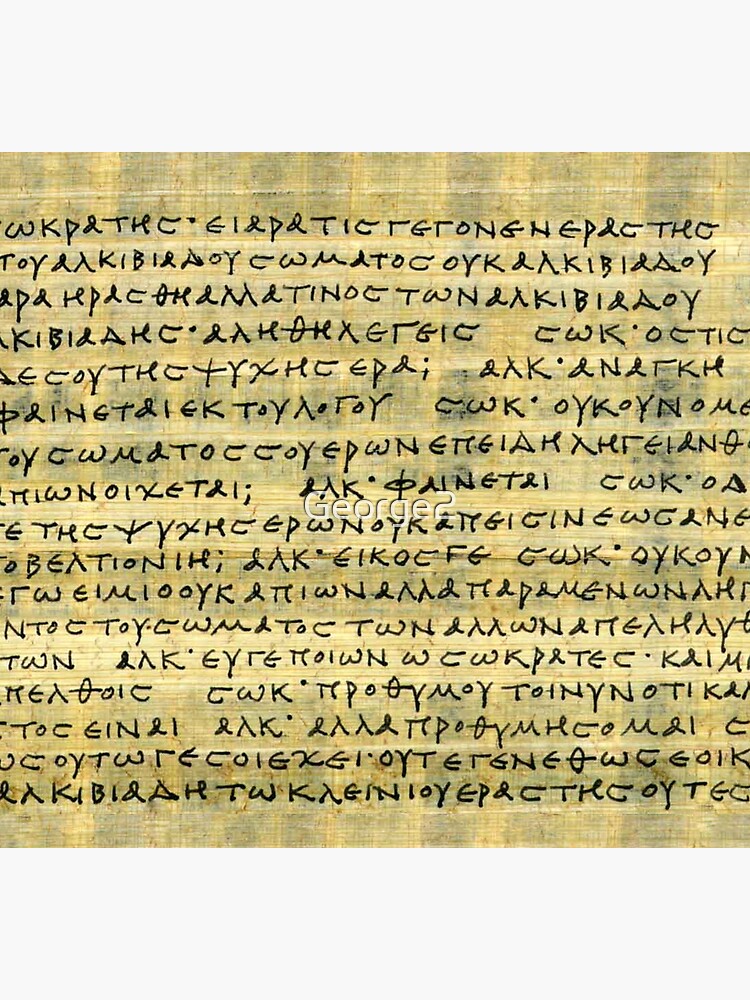 ϹΩΚΡΑΤΗϹ·ΕΙΑΡΑΤΙϹΓΕΓΟΝΕΝΕΡΑϹΤΗϹ
ΤΟΥΑΛΚΙΒΙΑΔΟΥϹΩΜΑΤΟϹΟΥΚΑΛΚΙΒΙΑΔΟΥ
ΑΡΑΗΡΑϹΘΗΑΛΛΑΤΙΝΟϹΤΩΝΑΛΚΙΒΙΑΔΟΥ
ΛΚΙΒΙΑΔΗϹ·ΑΛΗΘΗΛΕΓΕΙϹ ϹΩΚ·ΟϹΤΙϹ
ΔΕϹΟΥΤΗϹΨΥΧΗϹΕΡΑ; ΑΛΚ·ΑΝΑΓΚΗ
ΦΑΙΝΕΤΑΙΕΚΤΟΥΛΟΓΟΥ ϹΩΚ·ΟΥΚΟΥΝΟΜΕ
ΤΟΥϹΩΜΑΤΟϹϹΟΥΕΡΩΝΕΠΕΙΔΗΛΗΓΕΙΑΝΘΟ
ΑΠΙΩΝΟΙΧΕΤΑΙ; ΑΛΚ·ΦΑΙΝΕΤΑΙ ϹΩΚ·ΟΔ
George2
ΓΕΤΗϹΨΥΧΗϹΕΡΩΝΟΥΚΑΠΕΙϹΙΝΕΩϹΑΝΕ
ΤΟΒΕΛΤΙΟΝΙΗ; ΑΛΚ·ΕΙΚΟϹΓΕ ϹΩΚ·ΟΥΚΟΥΝ
ΕΓΩΕΙΜΙΟΟΥΚΑΠΙΩΝΑΛΛΑΠΑΡΑΜΕΝΩΝΛΗΓ
ΝΤΟϹΤΟΥϹΩΜΑΤΟϹΤΩΝΑΛΛΩΝΑΠΕΛΗΛΥΘ
ΤΩΝ ΑΛΚ·ΕΥΓΕΠΟΙΩΝΩϹΩΚΡΑΤΕϹ·ΚΑΙΜ
ΑΠΕΛΘΟΙϹ ϹΩΚ·ΠΡΟΘΥΜΟΥΤΟΙΝΥΝΟΤΙΚΑΛ
ϹΤΟϹΕΙΝΑΙ ΑΛΚ·ΑΛΛΑΠΡΟΘΥΜΗϹΟΜΑΙ Ϲ
ΩϹΟΥΤΩΓΕϹΟΙΕΧΕΙ·ΟΥΤΕΓΕΝΕΘΩϹΕΟΙΚ
ΑΛΚΙΒΙΑΔΗΤΩΚΛΕΙΝΙΟΥΕΡΑϹΤΗϹΟΥΤΕϹ